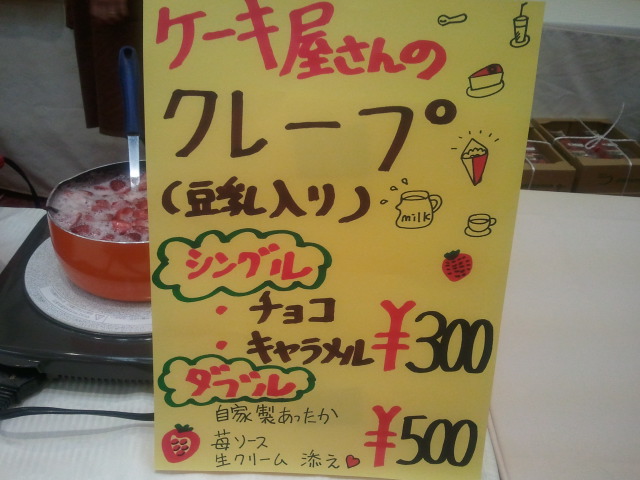 ケーキ屋さんの
クレープ
(豆乳入り)
milk
シングル
・チョコ
・キャラメル ¥300
ダブル
自家製あったか
苺ソース
生クリーム 添え♥
¥500